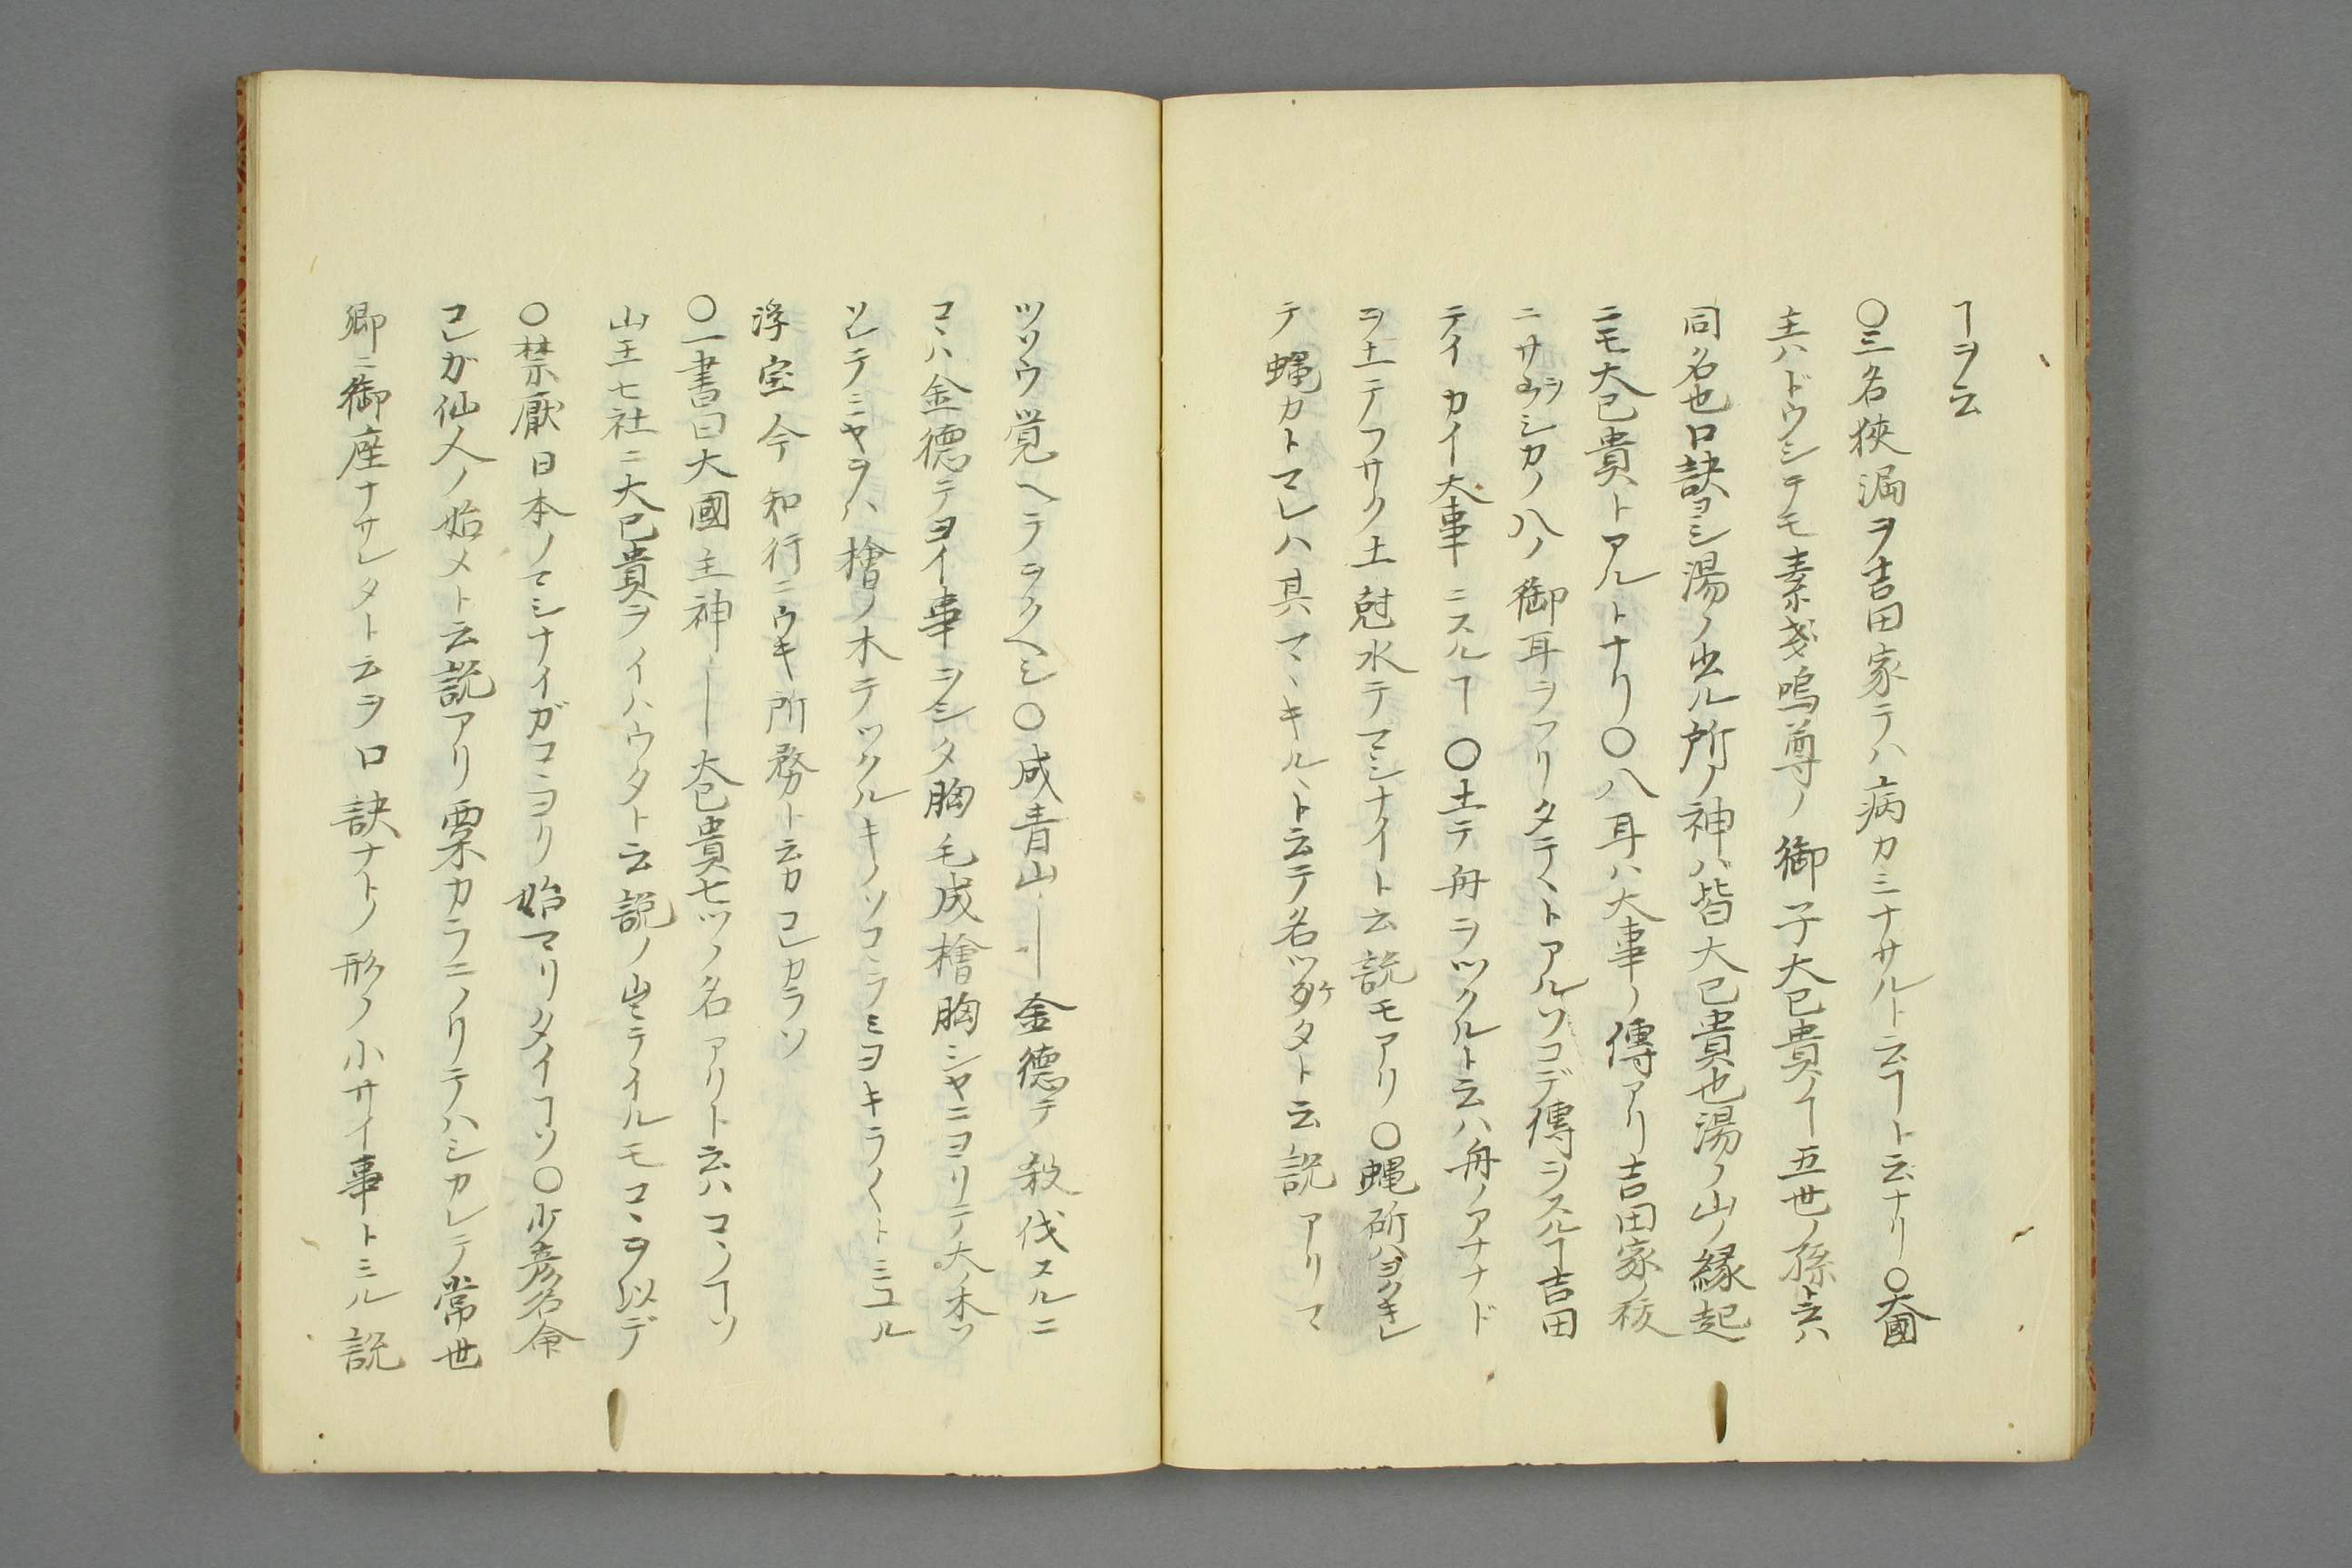 ヿヲ云
〇三名狭漏ヲ吉田家テハ病カミナサルト云ヿト云ナリ〇大國
主ハドウシテモ素戔嗚尊ノ御子大已貴ノヿ五世ノ孫ト云ハ
同名也口訣ヨシ湯ノ出ル所ノ神ハ皆大已貴也湯ノ山ノ縁起
ニモ大已貴トアルトナリ〇八耳ハ大事ノ傳アリ吉田家ノ秡
ニサヲシカノ八ノ御耳ヲフリタテヽトアルソコデ傳ヲスルヿ吉田
テイカイ大事ニスルヿ〇土テ舟ヲツクルト云ハ舟ノアナナド
ヲ土テフサク土尅水テマシナイト云説モアリ〇蠅斫ハヨクキレ
テ蠅カトマレハ其マヽキルヽト云テ名ツケタト云説アリマ
ツソウ覚ヘテヲクヘシ〇成青山―― 金徳テ殺伐スルニ
コヽハ金徳テヨイ事ヲシタ胸毛成檜胸シヤニヨリテ大木ソ
ソレテミヤヲハ檜ノ木テツクルキノソコラミヨキラ〳〵トミユル
浮宝今知行ニウキ所務ト云カコレカラソ
〇一書曰大國主神―― 大已貴七ツノ名アリト云ハコノヿソ
山王七社ニ大已貴ヲイハウタト云説ノ出テイルモコヽヲ以デ
〇禁厭日本ノマシナイガコヽヨリ始マリタイコソ〇少彦名命
コレガ仙人ノ始メト云説アリ粟カラニノリテハシカレテ常世
郷ニ御座ナサレタト云ヲ口訣ナトノ形ノ小サイ事トミル説